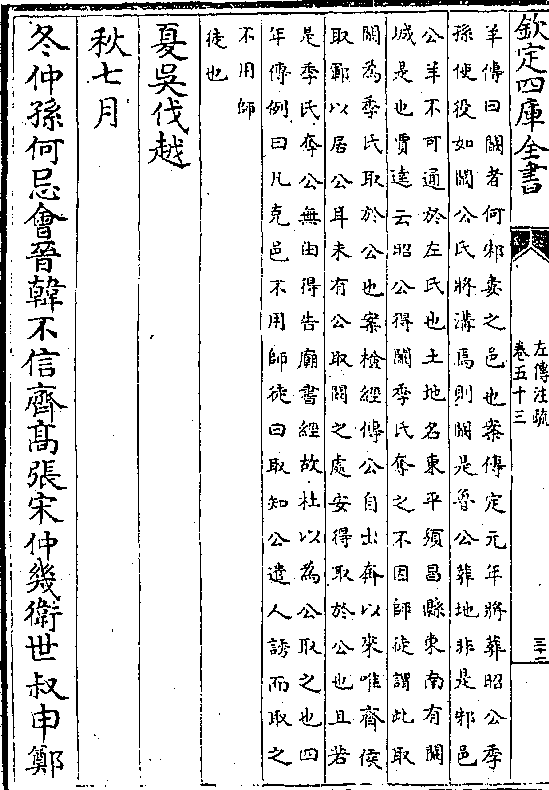 欽定四庫全書
左傳注疏
卷五十三
三十二
羊傳曰闞者何邾婁之邑也案傳定元年將葬昭公季
孫使役如闞公氏將溝焉則闞是魯公葬地非是邾邑
公羊不可通於左氏也土地名東平須昌縣東南有闞
城是也賈逵云昭公得闞季氏奪之不因師徒謂此取
闞為季氏取於公也案檢經傳公自出奔以來唯齊侯
取鄆以居公耳未有公取闞之處安得取於公也且若
是季氏奪公無由得告廟書經故杜以為公取之也四
年傳例曰凡克邑不用師徒曰取知公遣人誘而取之
不用師
徒也
夏吳伐越
秋七月
冬仲孫何忌會晉韓不信齊髙張宋仲幾衛世叔申鄭